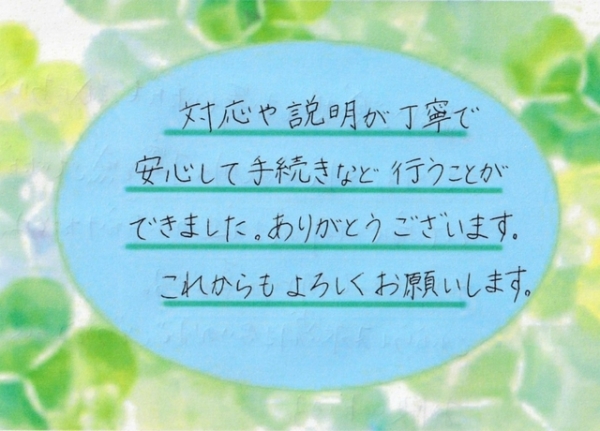 対応や説明が丁寧で
安心して手続きなど行うことが
できました。ありがとうございます。
これからもよろしくお願いします。